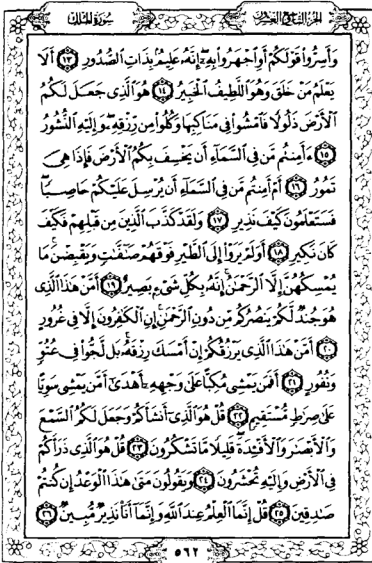 الجزء التاسع والعشرون
سورة الملك
وَأَسِرُّوا۟ قَوْلَكُمْ أَوِ ٱجْهَرُوا۟ بِهِۦٓ إِنَّهُۥ عَلِيمٌۢ بِذَاتِ ٱلصُّدُورِ ١٣ أَلَا
يَعْلَمُ مَنْ خَلَقَ وَهُوَ ٱللَّطِيفُ ٱلْخَبِيرُ ١٤ هُوَ ٱلَّذِى جَعَلَ لَكُمُ
ٱلْأَرْضَ ذَلُولًا فَٱمْشُوا۟ فِى مَنَاكِبِهَا وَكُلُوا۟ مِن رِّزْقِهِۦ وَإِلَيْهِ ٱلنُّشُورُ
١٥ ءَأَمِنتُم مَّن فِى ٱلسَّمَآءِ أَن يَخْسِفَ بِكُمُ ٱلْأَرْضَ فَإِذَا هِىَ
تَمُورُ ١٦ أَمْ أَمِنتُم مَّن فِى ٱلسَّمَآءِ أَن يُرْسِلَ عَلَيْكُمْ حَاصِبًا
فَسَتَعْلَمُونَ كَيْفَ نَذِيرِ ١٧ وَلَقَدْ كَذَّبَ ٱلَّذِينَ مِن قَبْلِهِمْ فَكَيْفَ
كَانَ نَكِيرِ ١٨ أَوَلَمْ يَرَوْا۟ إِلَى ٱلطَّيْرِ فَوْقَهُمْ صَٰٓفَّٰتٍ وَيَقْبِضْنَ مَا
يُمْسِكُهُنَّ إِلَّا ٱلرَّحْمَٰنُ إِنَّهُۥ بِكُلِّ شَىْءٍۭ بَصِيرٌ ١٩ أَمَّنْ هَٰذَا ٱلَّذِى
هُوَ جُندٌ لَّكُمْ يَنصُرُكُم مِّن دُونِ ٱلرَّحْمَٰنِ إِنِ ٱلْكَٰفِرُونَ إِلَّا فِى غُرُورٍ
٢٠ أَمَّنْ هَٰذَا ٱلَّذِى يَرْزُقُكُمْ إِنْ أَمْسَكَ رِزْقَهُۥ بَل لَّجُّوا۟ فِى عُتُوٍّ
وَنُفُورٍ ٢١ أَفَمَن يَمْشِى مُكِبًّا عَلَىٰ وَجْهِهِۦٓ أَهْدَىٰٓ أَمَّن يَمْشِى سَوِيًّا
عَلَىٰ صِرَٰطٍ مُّسْتَقِيمٍ ٢٢ قُلْ هُوَ ٱلَّذِىٓ أَنشَأَكُمْ وَجَعَلَ لَكُمُ ٱلسَّمْعَ
وَٱلْأَبْصَٰرَ وَٱلْأَفْـِٔدَةَ قَلِيلًا مَّا تَشْكُرُونَ ٢٣ قُلْ هُوَ ٱلَّذِى ذَرَأَكُمْ
فِى ٱلْأَرْضِ وَإِلَيْهِ تُحْشَرُونَ ٢٤ وَيَقُولُونَ مَتَىٰ هَٰذَا ٱلْوَعْدُ إِن كُنتُمْ
صَٰدِقِينَ ٢٥ قُلْ إِنَّمَا ٱلْعِلْمُ عِندَ ٱللَّهِ وَإِنَّمَآ أَنَا۠ نَذِيرٌ مُّبِينٌ ٢٦
٥٦٢